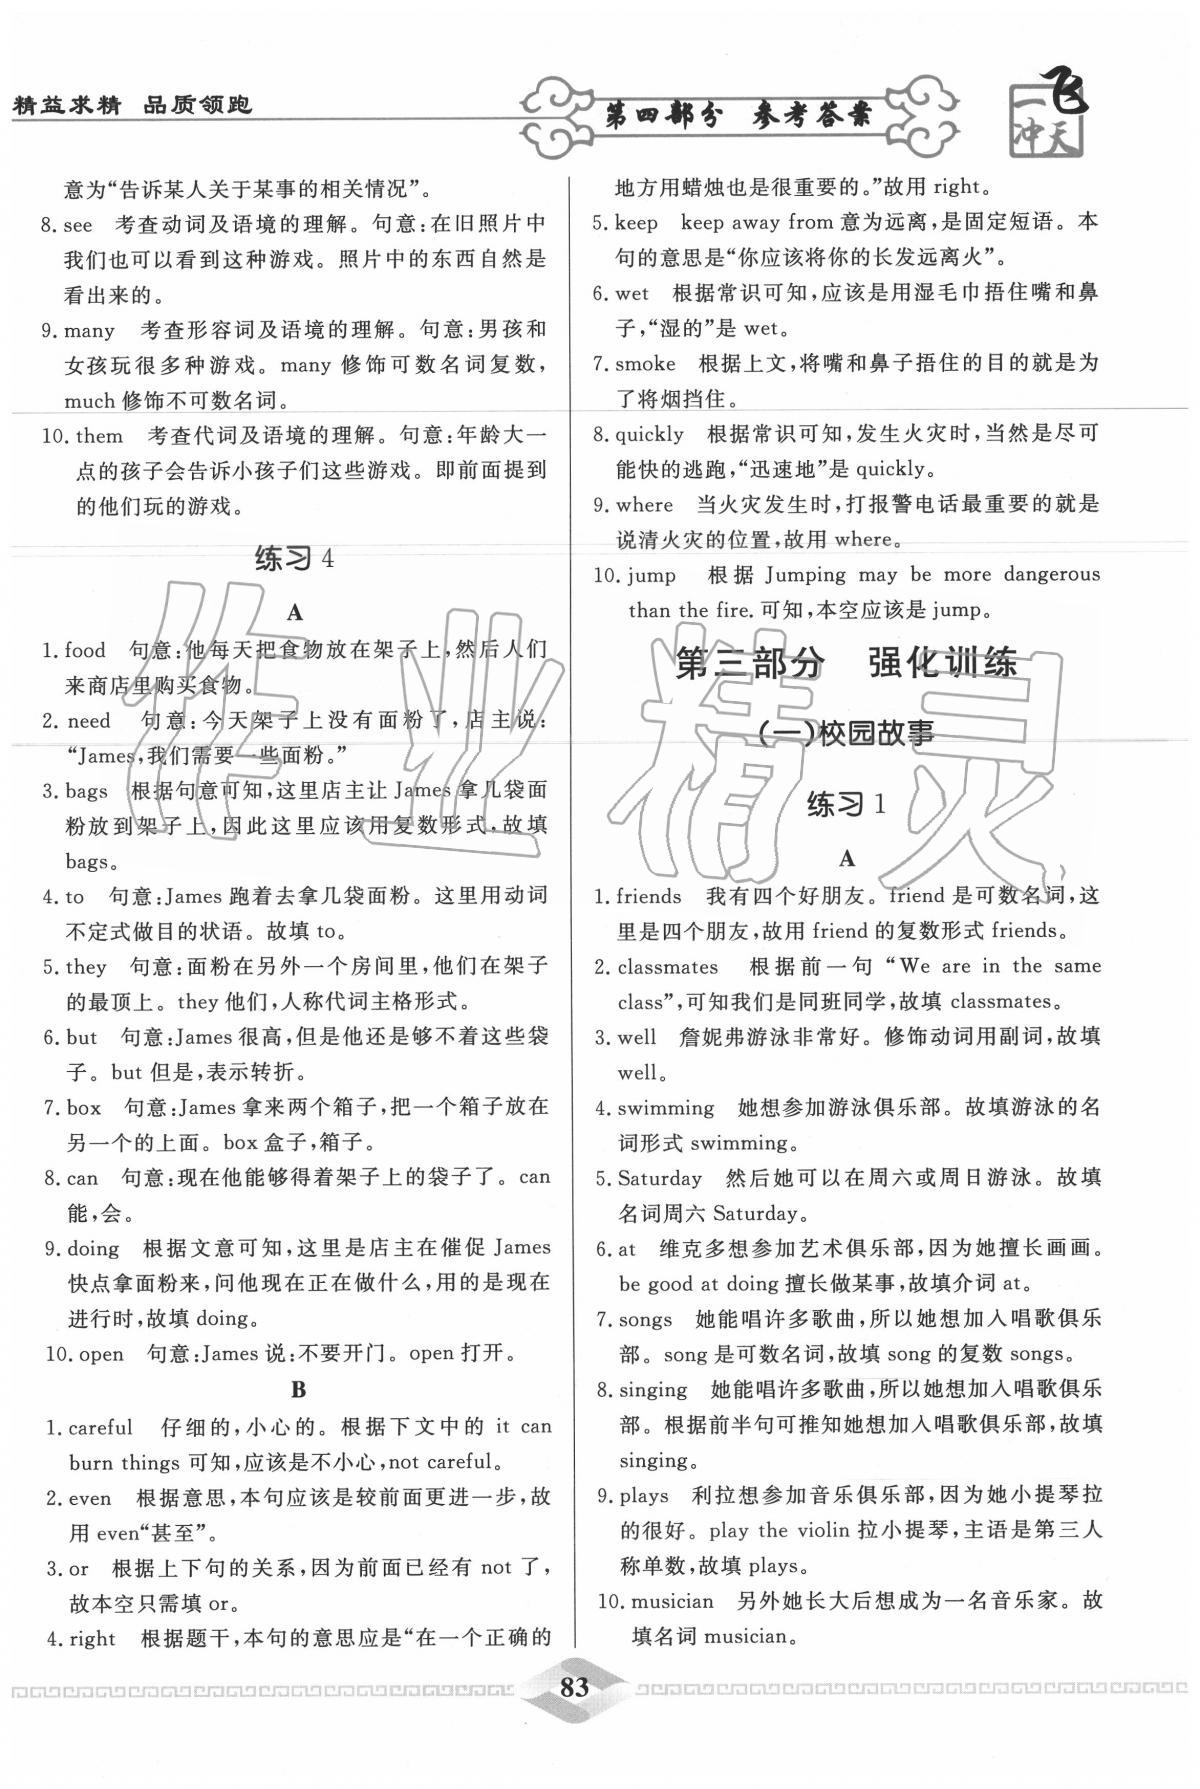 精益求精 品质领跑
第四部分 参考答案
一飞冲天
意为“告诉某人关于某事的相关情况”。
8. see 考查动词及语境的理解。句意:在旧照片中
我们也可以看到这种游戏。照片中的东西自然是
看出来的。
9. many 考查形容词及语境的理解。句意:男孩和
女孩玩很多种游戏。many 修饰可数名词复数,
much 修饰不可数名词。
10. them 考查代词及语境的理解。句意:年龄大一
点的孩子会告诉小孩子们这些游戏。即前面提到
的他们玩的游戏。
练习 4
A
1. food 句意:他每天把食物放在架子上,然后人们
来商店里购买食物。
2. need 句意:今天架子上没有面粉了,店主说:
“James,我们需要一些面粉。”
3. bags 根据句意可知,这里店主让 James 拿几袋面
粉放到架子上,因此这里应该用复数形式,故填
bags。
4. to 句意:James 跑着去拿几袋面粉。这里用动词
不定式做目的状语。故填 to。
5. they 句意:面粉在另外一个房间里,他们在架子
的最顶上。they 他们,人称代词主格形式。
6. but 句意:James 很高,但是他还是够不着这些袋
子。but 但是,表示转折。
7. box 句意:James 拿来两个箱子,把一个箱子放在
另一个的上面。box 盒子,箱子。
8. can 句意:现在他能够得着架子上的袋子了。can
能,会。
9. doing 根据文意可知,这里是店主在催促 James
快点拿面粉来,问他现在正在做什么,用的是现在
进行时,故填 doing。
10. open 句意:James 说:不要开门。open 打开。
B
1. careful 仔细的,小心的。根据下文中的 it can
burn things 可知,应该是不小心,not careful。
2. even 根据意思,本句应该是较前面更进一步,故
用 even“甚至”。
3. or 根据上下句的关系,因为前面已经有 not 了,
故本空只需填 or。
4. right 根据题干,本句的意思应是“在一个正确的
地方用蜡烛也是很重要的。”故用 right。
5. keep keep away from 意为远离,是固定短语。本
句的意思是“你应该将你的长发远离火”。
6. wet 根据常识可知,应该是用湿毛巾捂住嘴和鼻
子,“湿的”是 wet。
7. smoke 根据上文,将嘴和鼻子捂住的目的就是为
了将烟挡住。
8. quickly 根据常识可知,发生火灾时,当然是尽可
能快的逃跑,“迅速地”是 quickly。
9. where 当火灾发生时,打报警电话最重要的就是
说清火灾的位置,故用 where。
10. jump 根据 Jumping may be more dangerous
than the fire. 可知,本空应该是 jump。
第三部分 强化训练
(一)校园故事
练习 1
A
1. friends 我有四个好朋友。friend 是可数名词,这
里是四个朋友,故用 friend 的复数形式 friends。
2. classmates 根据前一句“We are in the same
class”,可知我们是同班同学,故填 classmates。
3. well 詹妮弗游泳非常好。修饰动词用副词,故填
well。
4. swimming 她想参加游泳俱乐部。故填游泳的名
词形式 swimming。
5. Saturday 然后她可以在周六或周日游泳。故填
名词周六 Saturday。
6. at 维克多想参加艺术俱乐部,因为她擅长画画。
be good at doing 擅长做某事,故填介词 at。
7. songs 她能唱许多歌曲,所以她想加入唱歌俱乐
部。song 是可数名词,故填 song 的复数 songs。
8. singing 她能唱许多歌曲,所以她想加入唱歌俱乐
部。根据前半句可推知她想加入唱歌俱乐部,故填
singing。
9. plays 利拉想参加音乐俱乐部,因为她小提琴拉
的很好。play the violin 拉小提琴,主语是第三人
称单数,故填 plays。
10. musician 另外她长大后想成为一名音乐家。故
填名词 musician。
作业精灵
83